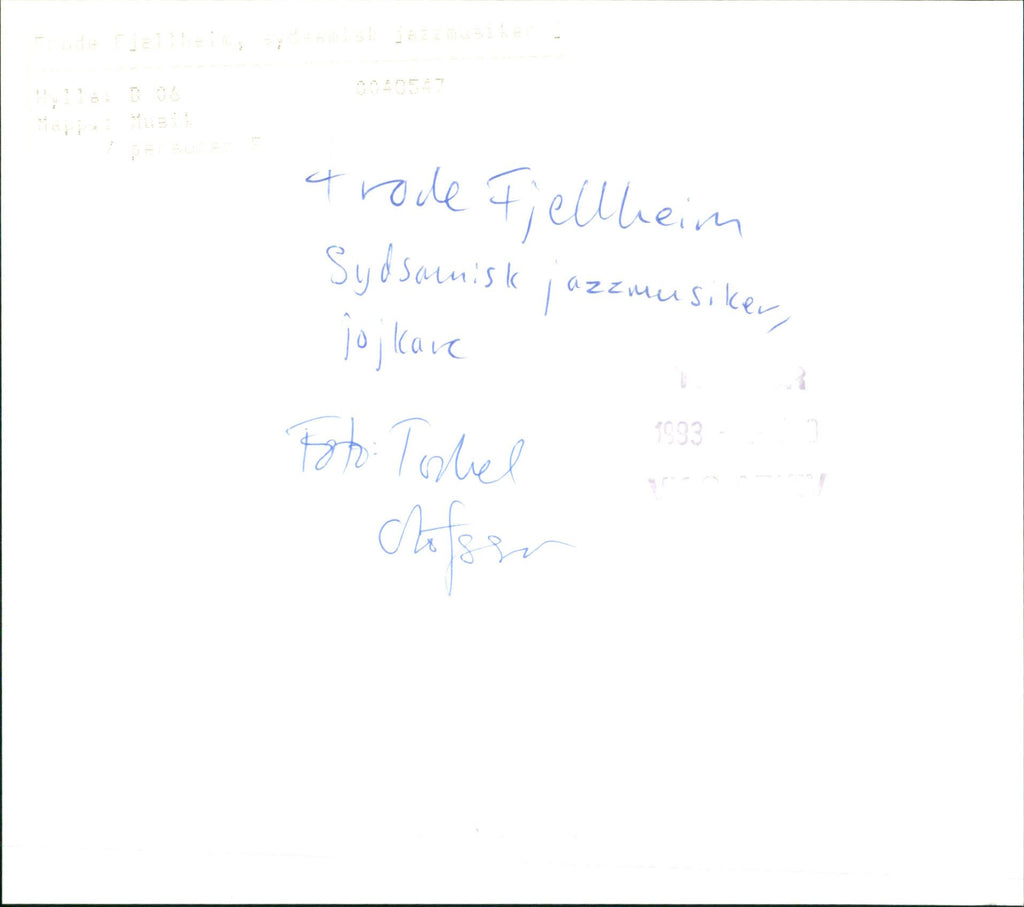 Frode Fjellheim, sydsamisk jazzmusiker
Hylla: B 06 0040547
Mapp: Musik
/ personer F
Frode Fjellheim
Sydsamisk jazzmusiker,
jojkare
Foto: Torkel
Olofsson
1993